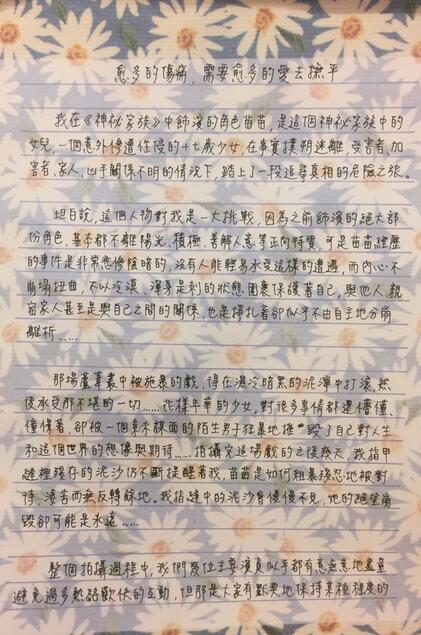 愈多的傷痛，需要愈多的愛去撫平
我在《神祕家族》中飾演的角色苗苗，是這個神祕家族中的
女兒，一個意外慘遭性侵的十七歲少女，在事實撲朔迷離，受害者、加
害者、家人、凶手關係不明的情況下，踏上了一段追尋真相的危險之旅。
坦白說，這個人物對我是一大挑戰，因為之前飾演的絕大部
份角色，基本都不離陽光、積極、善解人意等正向特質，可是苗苗經歷
的事件是非常悲慘陰暗的，沒有人能輕易承受這樣的遭遇，而內心不
崩塌扭曲，不以冷漠、渾身是刺的狀態圍裹保護著自己，與他人、親
密家人甚至是與自己之間的關係，也是掙扎著卻似乎不由自主地分崩
離析……
那場蘆葦叢中被施暴的戲，得在濕冷暗黑的泥濘中打滾，然
後承受那不堪的一切……花樣年華的少女，對很多事情都還懵懂、
憧憬著，卻被一個素未謀面的陌生男子狂暴地摧毀了自己對人生
和這個世界的想像與期待……拍攝完這場戲的之後幾天，我指甲
縫裡殘存的泥沙仍不斷提醒著我，苗苗是如何粗暴殘忍地被對
待，淒苦而無反轉餘地。我指縫中的泥沙會慢慢不見，她的絕望崩
毀卻可能是永遠……
整個拍攝過程中，我們幾位主要演員似乎都有意無意地盡量
避免過多熱絡歡快的互動，但那是大家有默契地保持某種程度的